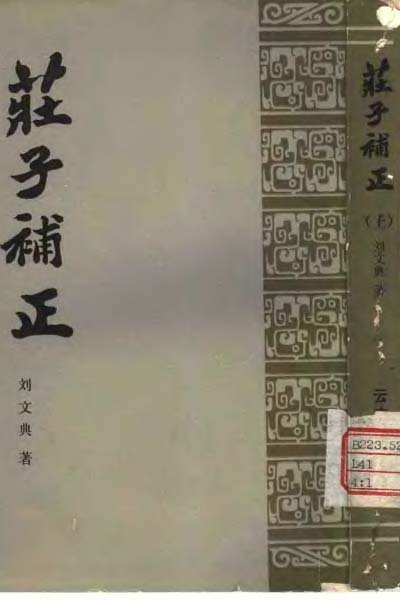 莊子補正
刘文典 著
莊子補正
(上)
刘文典 著
云
B223.52
L41
4:1